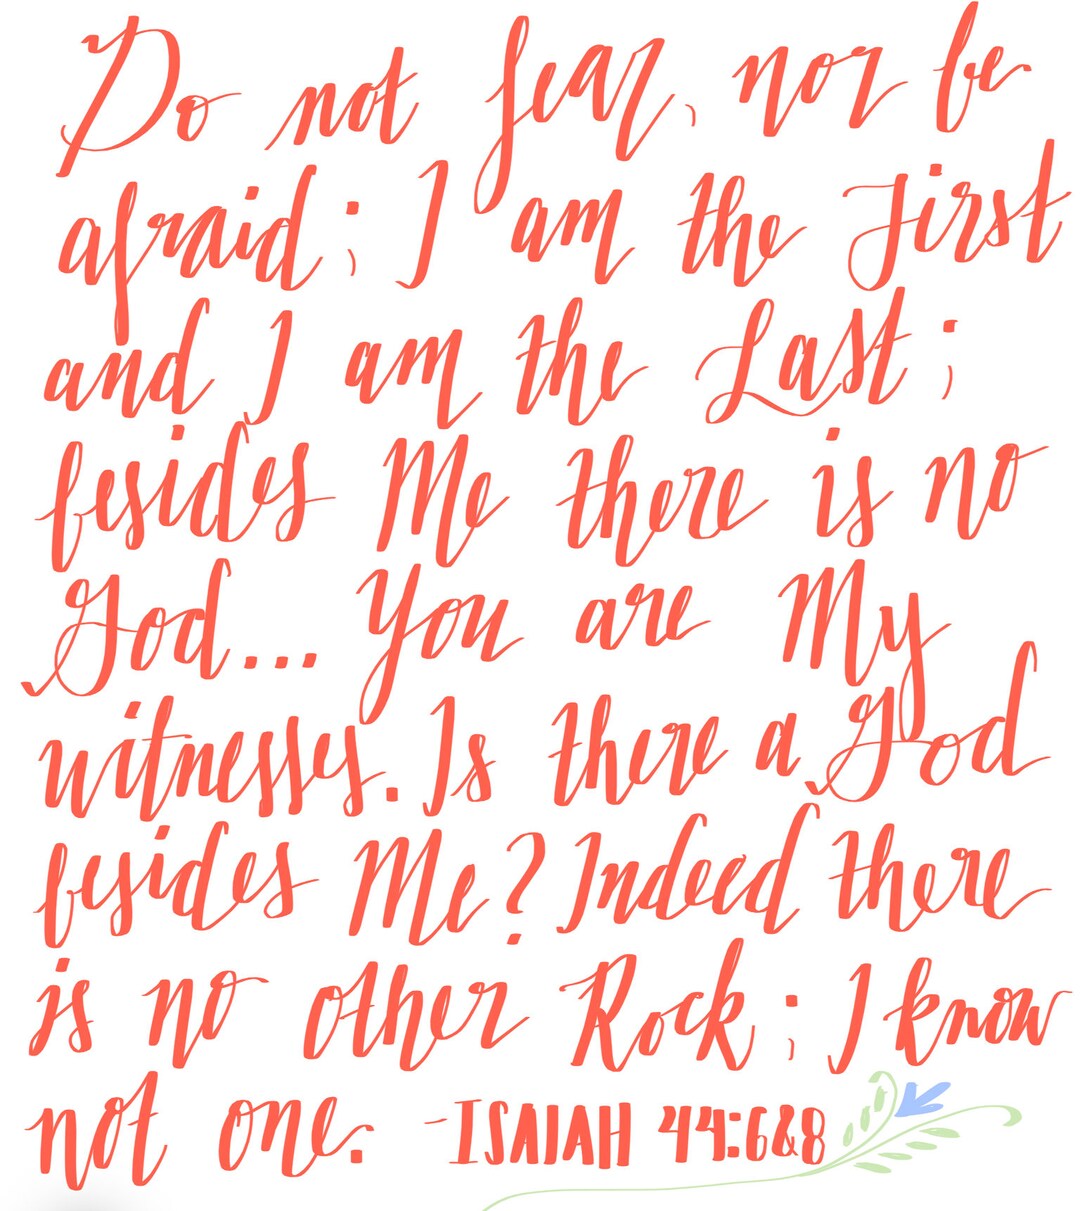 Do not fear, nor be
afraid; I am the First
and I am the Last;
besides Me there is no
God... You are My
witnesses. Is there a God
besides Me? Indeed there
is no other Rock; I know
not one. -ISAIAH 44:6&8